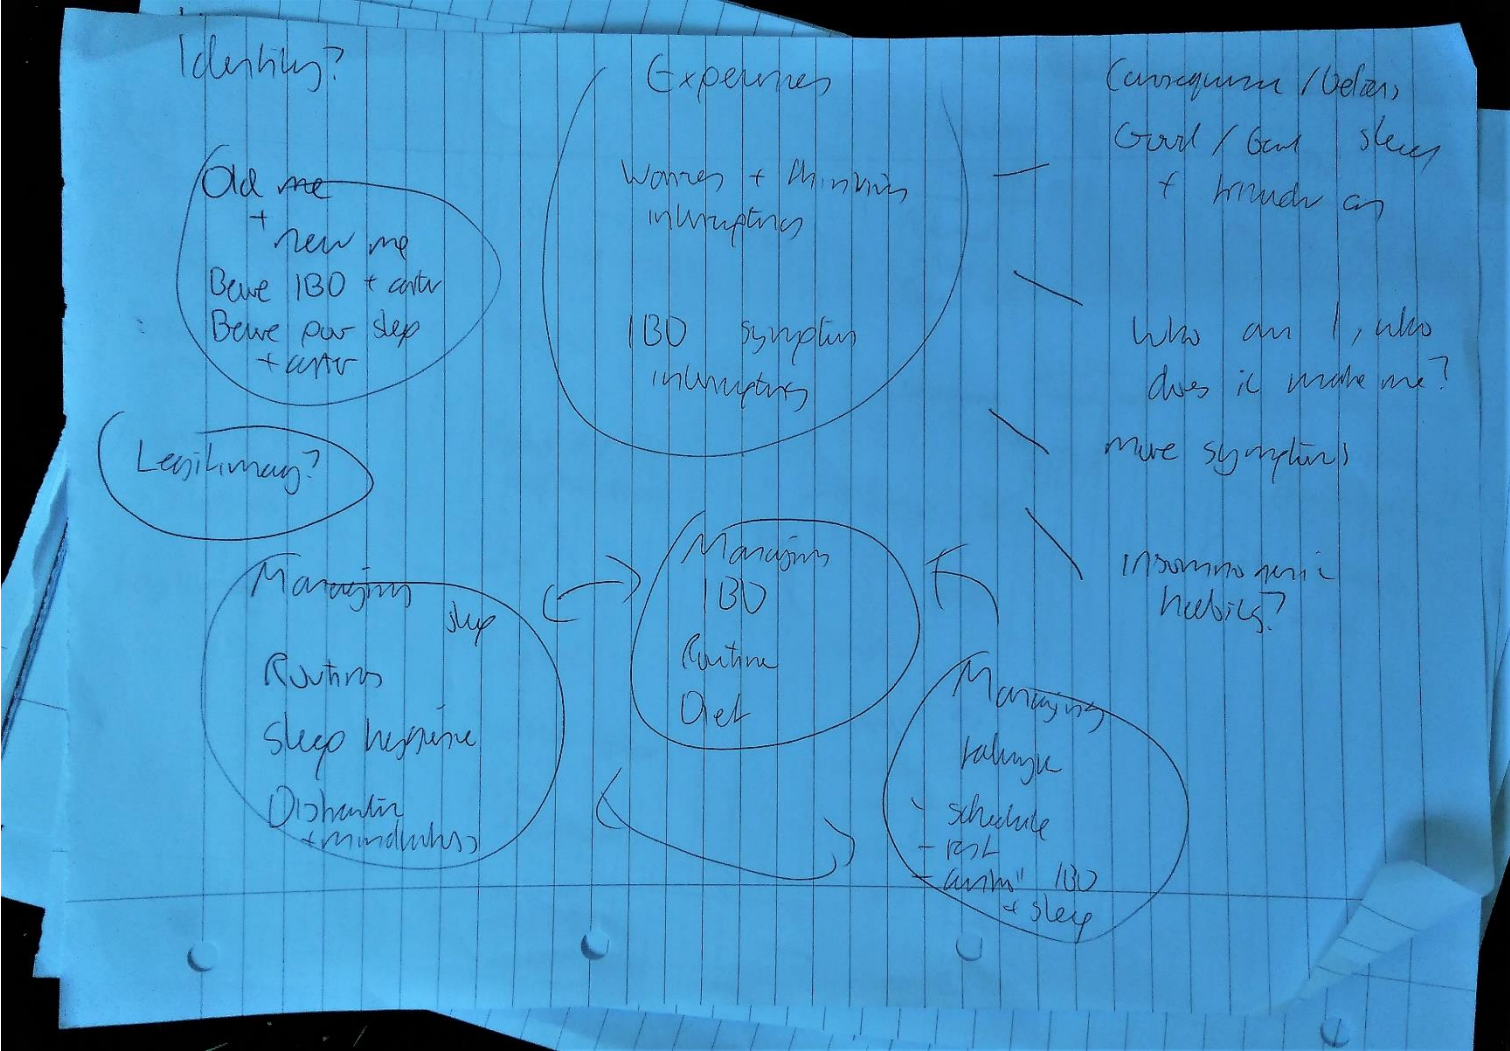 Identity?
Old me
+
new me
Before IBD + after
Before poor sleep
+ after
Legitimacy?
Experiences
Worries + thinking
interruptions
IBD symptom
interruptions
Consequence / beliefs
Good / bad sleep
+ knock on
Who am I, who
does it make me?
more symptoms
insomnogenic
Managing
sleep
Routines
Sleep hygiene
Distraction
+ mindfulness
Managing
IBD
Routine
Diet
Managing
fatigue
- schedule
- rest
- IBD
+ sleep